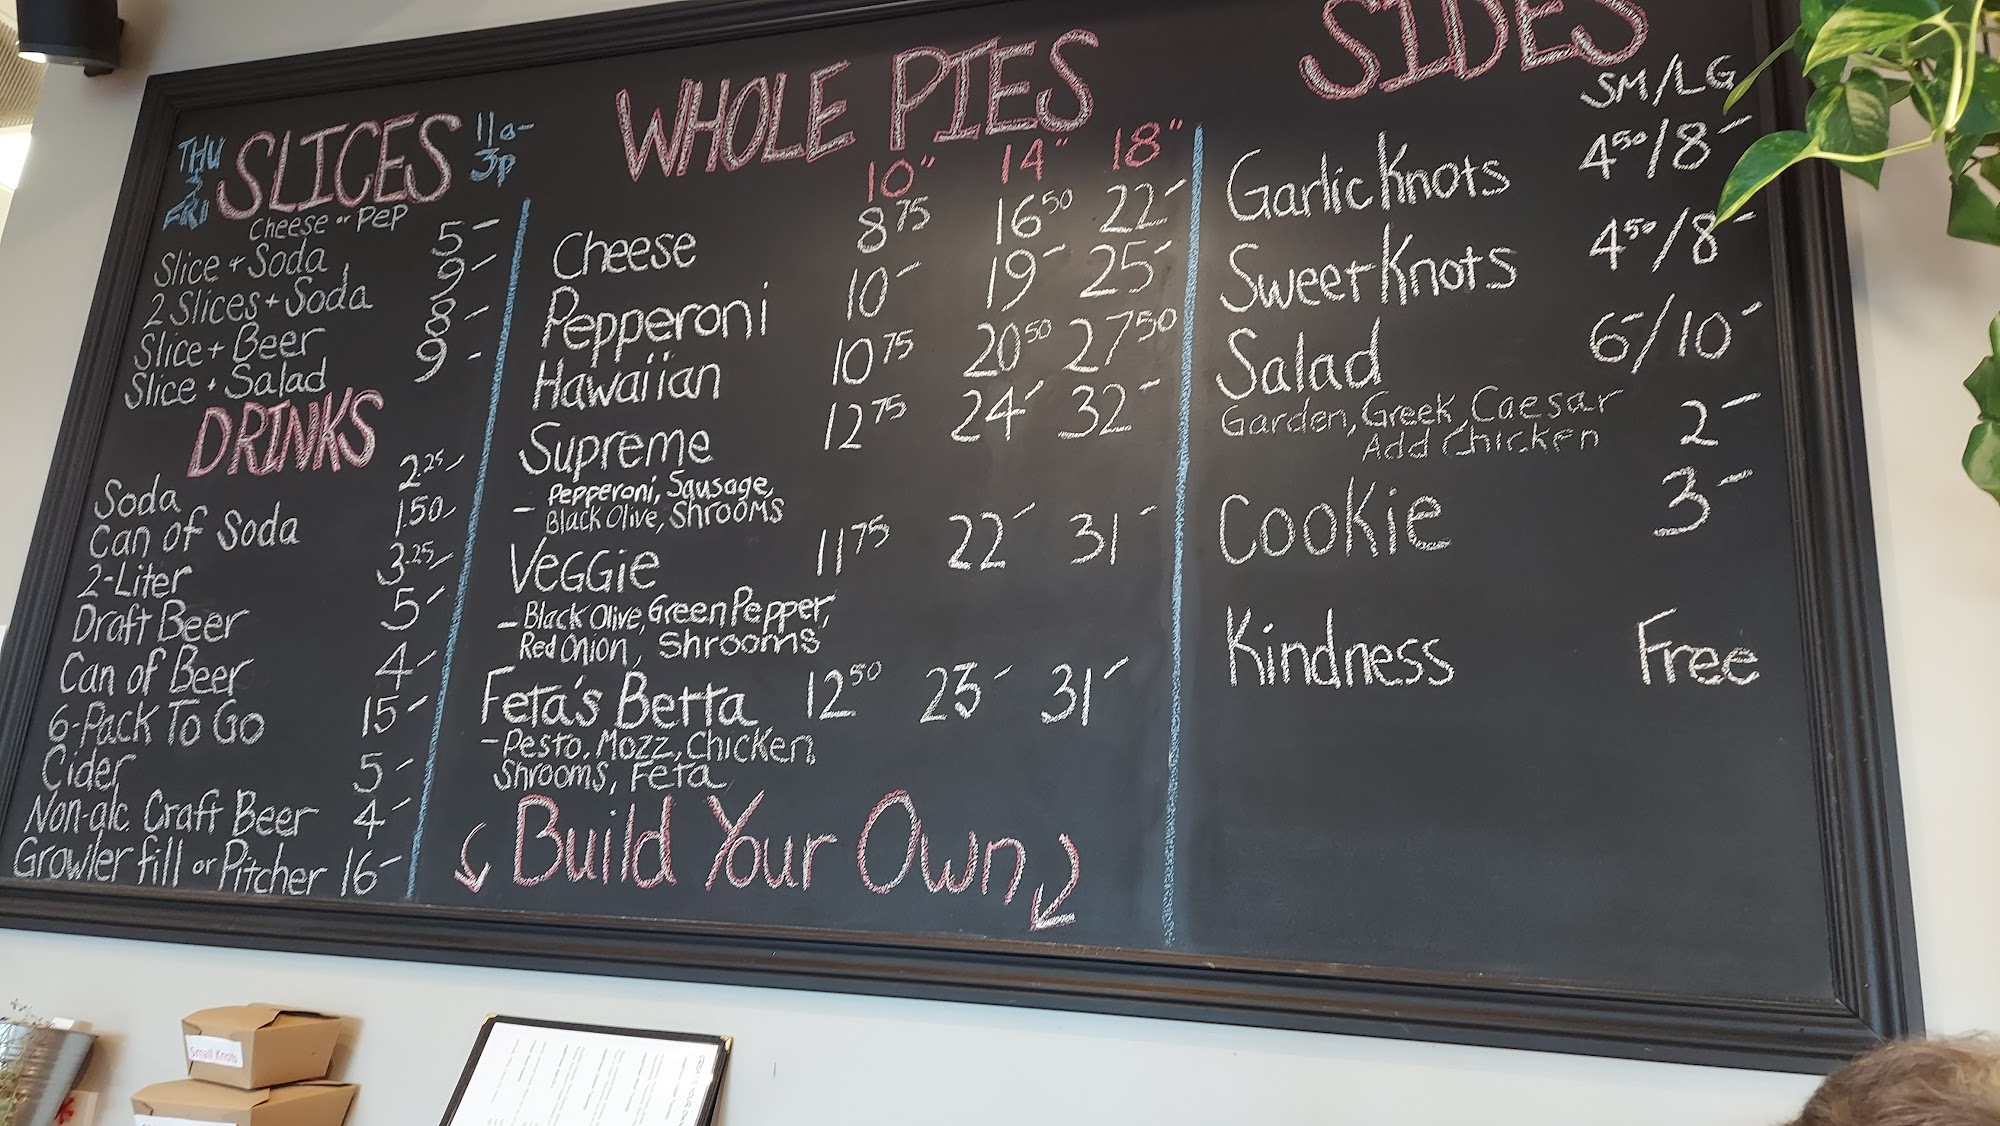 THU > FRI SLICES 11a-3p
Cheese or Pep
Slice + Soda 5-
2 Slices + Soda 9-
Slice + Beer 8-
Slice + Salad 9-
DRINKS
Soda 2.25
Can of Soda 1.50
2-Liter 3.25
Draft Beer 5-
Can of Beer 4-
6-Pack To Go 15-
Cider 5-
Non-alc Craft Beer 4-
Growler fill or Pitcher 16-
WHOLE PIES
10" 14" 18"
Cheese 8 75 16 50 22-
Pepperoni 10- 19- 25-
Hawaiian 10 75 20 50 27 50
Supreme 12 75 24- 32-
- Pepperoni, Sausage,
Black Olive, Shrooms
Veggie 11 75 22- 31-
- Black Olive, Green Pepper,
Red Onion, Shrooms
Feta's Betta 12 50 23- 31-
- Pesto, Mozz, Chicken,
Shrooms, Feta
Build Your Own
SIDES
SM/LG
Garlic Knots 4 50/8-
Sweet Knots 4 50/8-
Salad 6-/10-
Garden, Greek, Caesar
Add Chicken 2-
Cookie 3-
Kindness Free
Small Knots